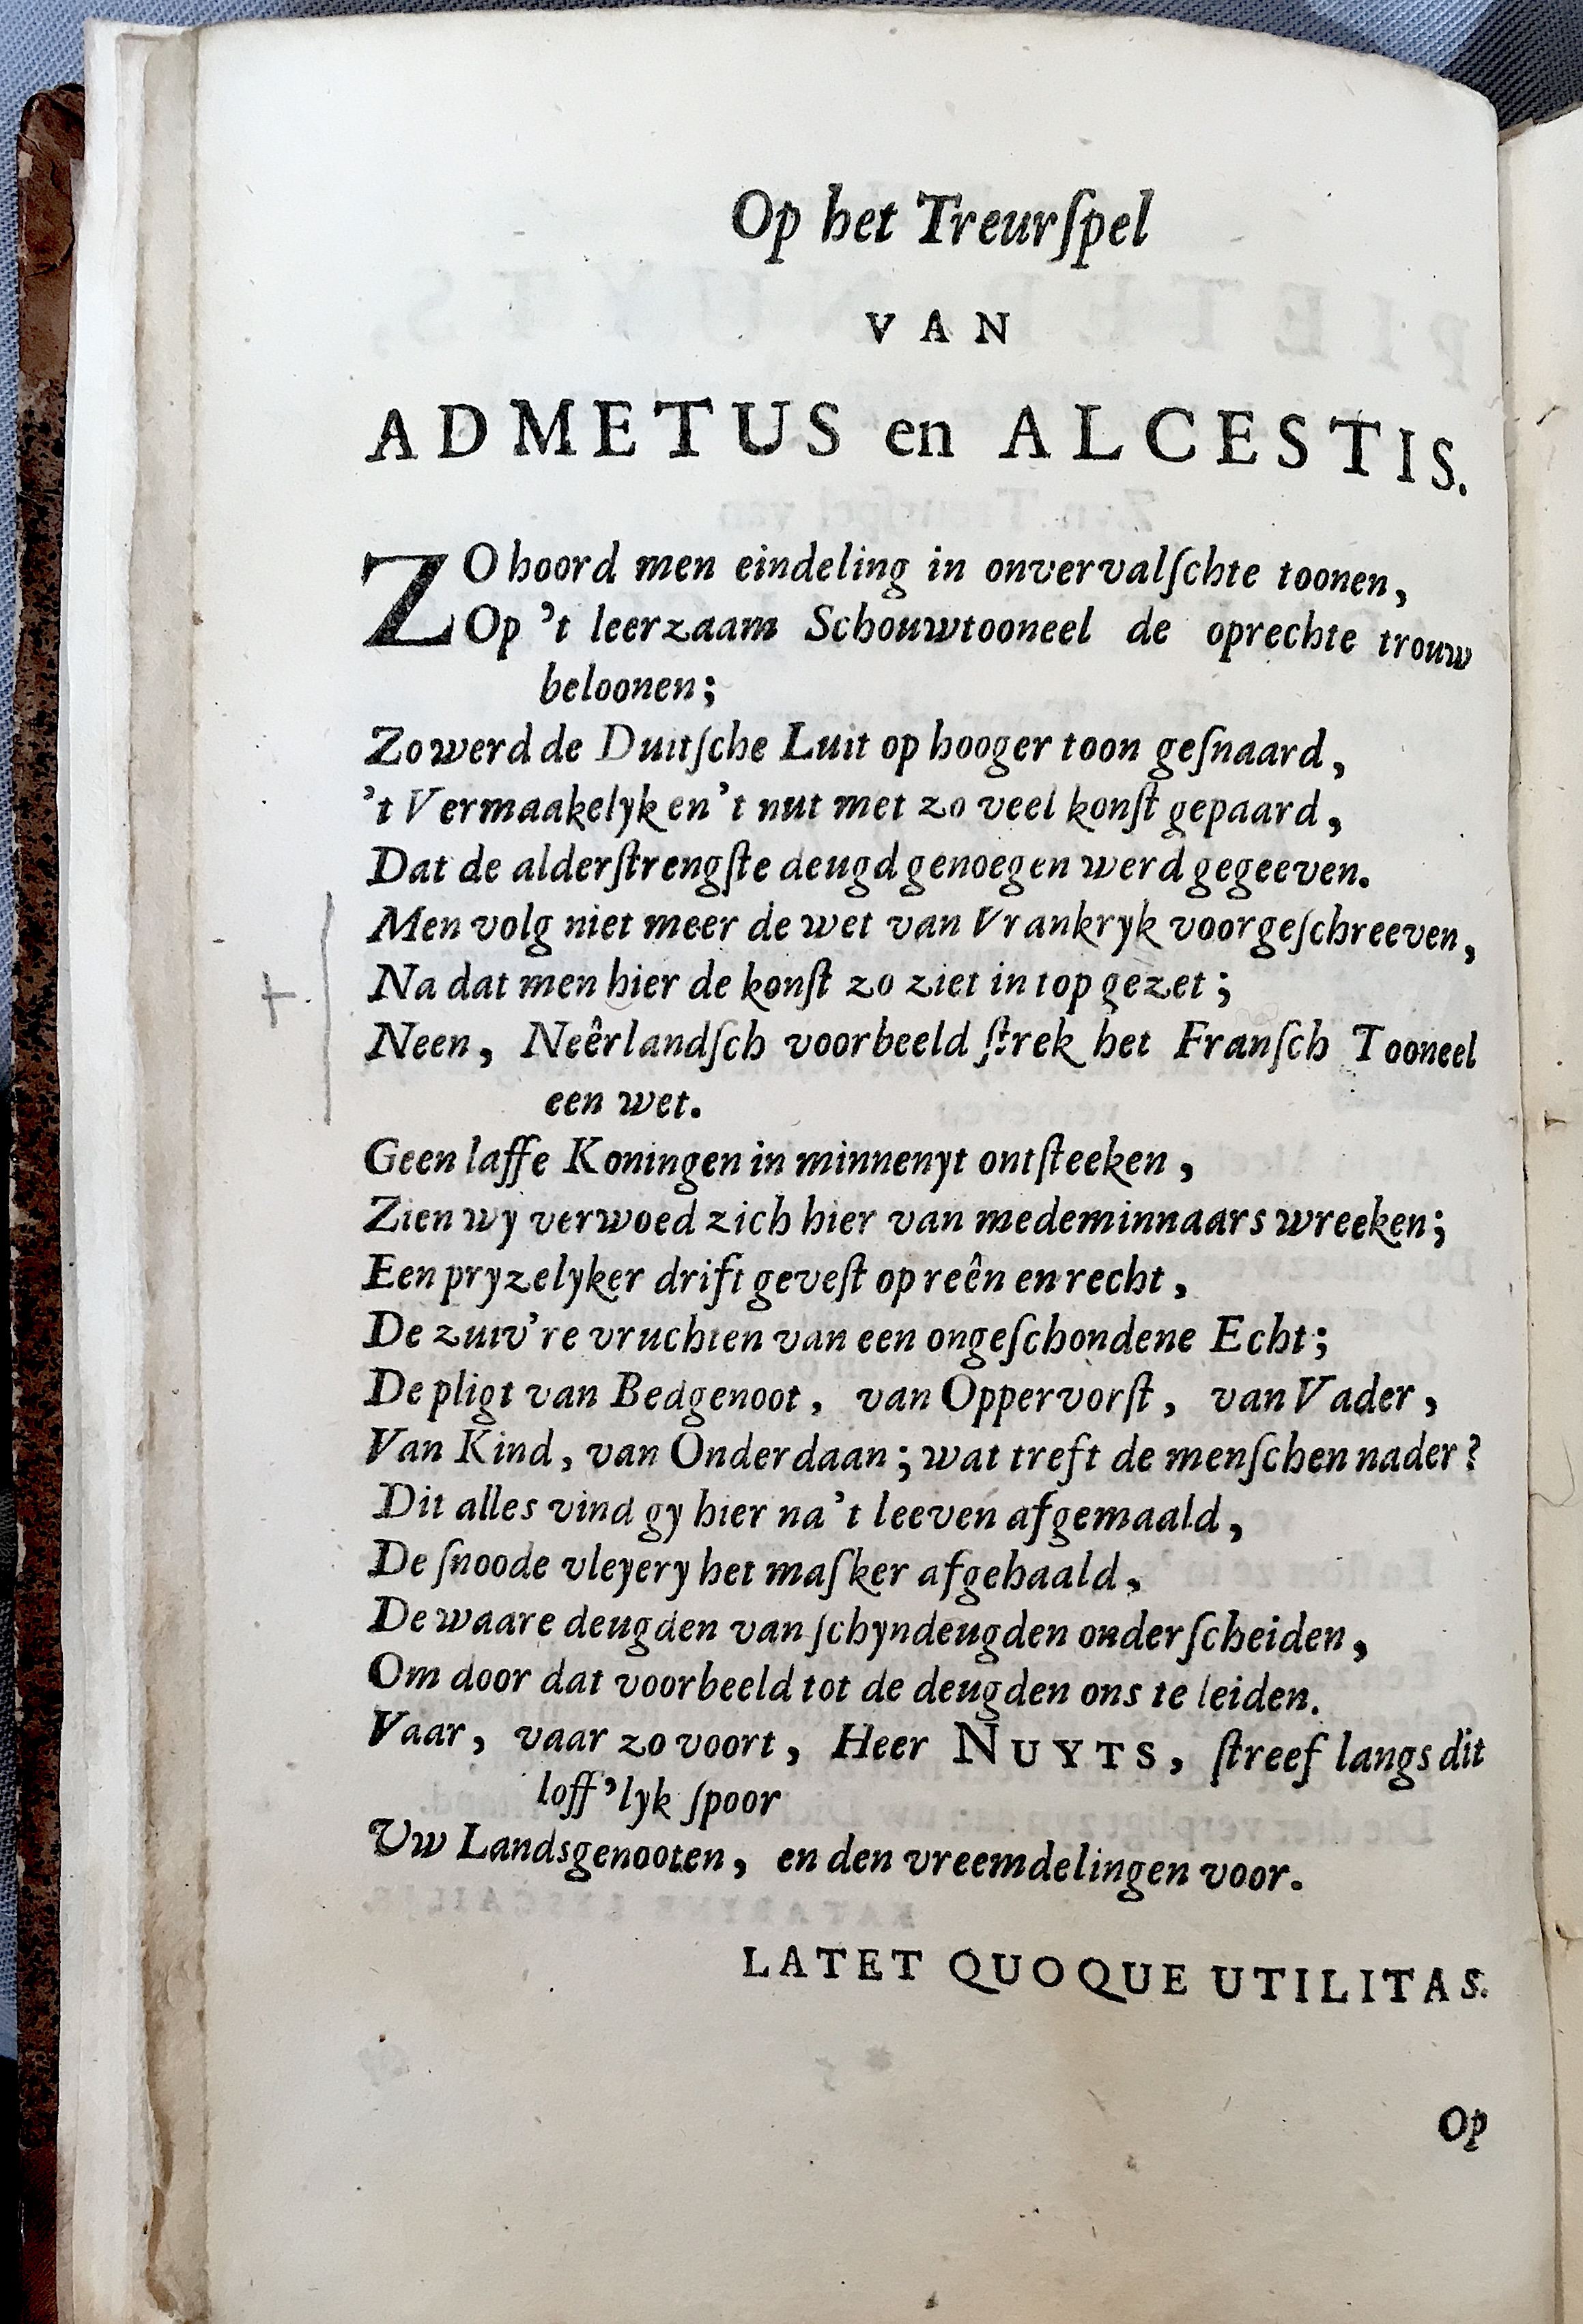 Op het Treurſpel
VAN
ADMETUS en ALCESTIS.
ZO hoord men eindeling in onvervalſchte toonen,
Op 't leerzaam Schouwtooneel de oprechte trouw
beloonen;
Zo werd de Duitſche Luit op hooger toon geſnaard,
't Vermaakelyk en 't nut met zo veel konſt gepaard,
Dat de alderſtrengſte deugd genoegen werd gegeeven.
Men volg niet meer de wet van Vrankryk voorgeſchreeven,
Na dat men hier de konſt zo ziet in top gezet;
Neen, Neêrlandſch voorbeeld ſtrek het Franſch Tooneel
een wet.
Geen laffe Koningen in minnenyt ontſteeken,
Zien wy verwoed zich hier van medeminnaars wreeken;
Een pryzelyker drift geveſt op reên en recht,
De zuiv're vruchten van een ongeſchondene Echt;
De pligt van Bedgenoot, van Oppervorſt, van Vader,
Van Kind, van Onderdaan; wat treft de menſchen nader?
Dit alles vind gy hier na 't leeven afgemaald,
De ſnoode vleyery het maſker afgehaald,
De waare deugden van ſchyndeugden onderſcheiden,
Om door dat voorbeeld tot de deugden ons te leiden.
Vaar, vaar zo voort, Heer NUYTS, ſtreef langs dit
loff'lyk ſpoor
Uw Landsgenooten, en den vreemdelingen voor.
LATET QUOQUE UTILITAS.
Op